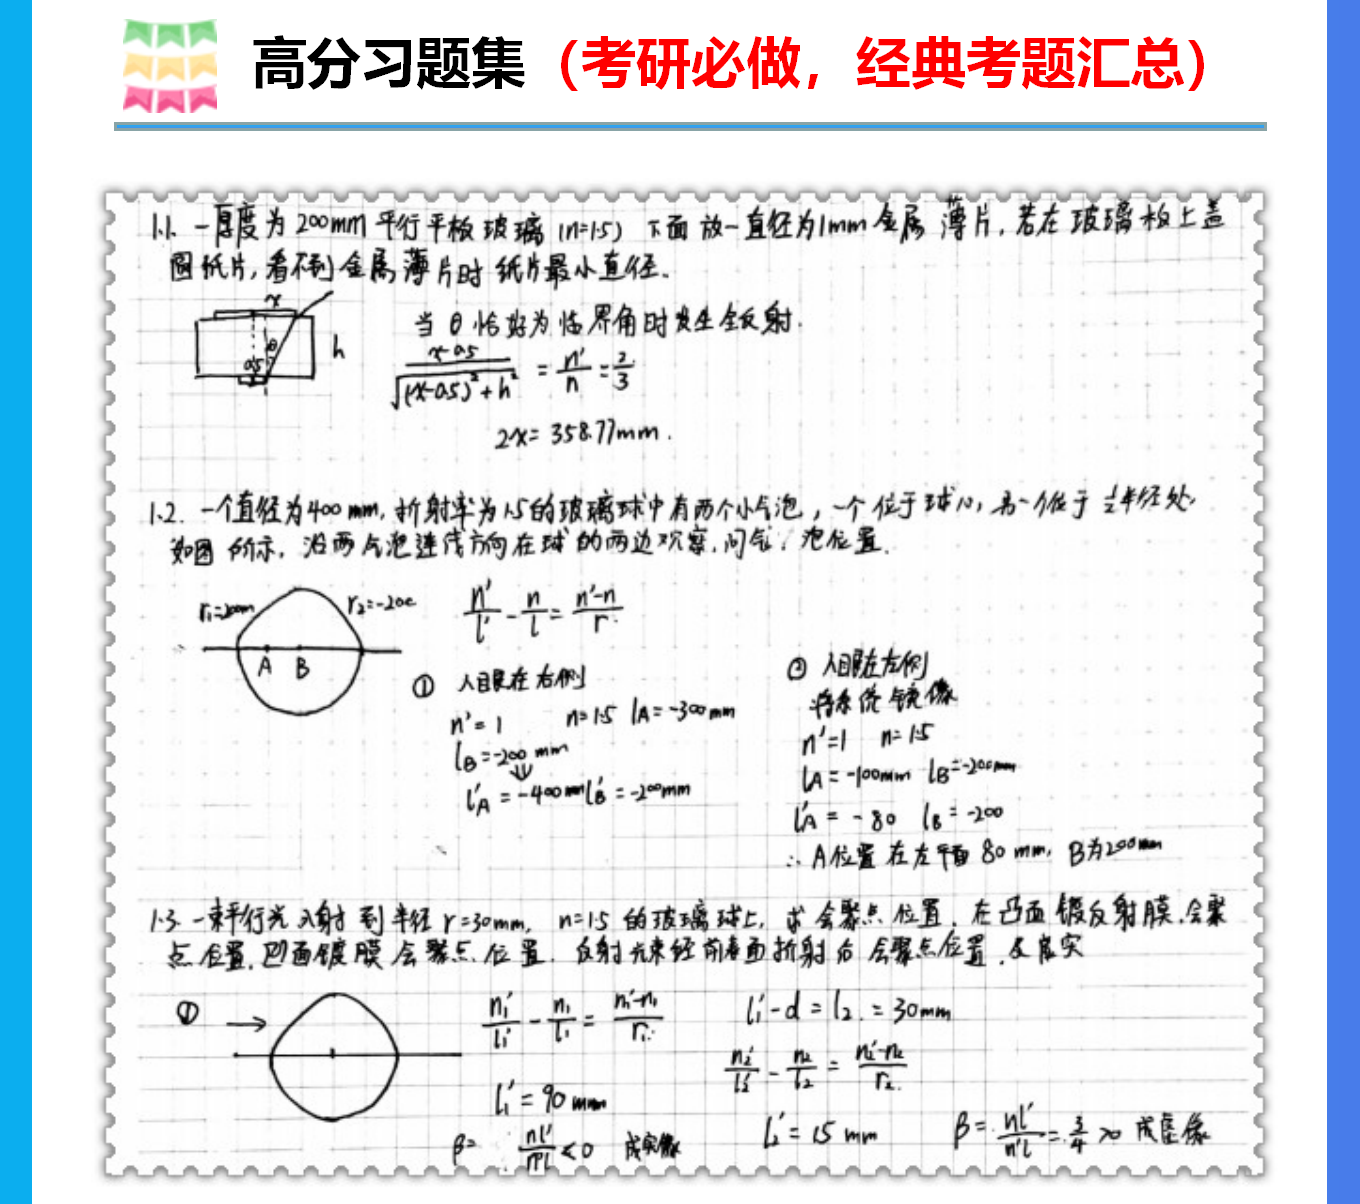 高分习题集（考研必做，经典考题汇总）
1.1. 一厚度为200mm平行平板玻璃(n=1.5) 下面放一直径为1mm金属薄片，若在玻璃板上盖
圆纸片，看不到金属薄片时纸片最小直径。
x
θ
0.5
h
当θ恰好为临界角时发生全反射.
x-0.5 / √((x-0.5)²+h²) = n'/n = 2/3
2x=358.77mm.
1.2. 一个直径为400mm,折射率为1.5的玻璃球中有两个小气泡，一个位于球心,另一个位于½半径处.
如图所示，沿两气泡连线方向在球的两边观察,问气泡位置.
r₁=200m
r₂=-200
A B
n'/l' - n/l = (n'-n)/r
① 人眼在右侧
n'=1 n=1.5 lA=-300mm
lB=-200 mm
⇓
l'A=-400mm l'B=-200mm
② 人眼在左侧
将系统镜像
n'=1 n=1.5
lA=-100mm lB=-200mm
l'A=-80 lB=-200
∴ A位置在左平面80mm, B为200mm
1.3. 一束平行光入射到半径r=30mm, n=1.5的玻璃球上，求会聚点位置. 在凸面镀反射膜,会聚
点位置,凹面镀膜会聚点位置. 反射光束经前表面折射后会聚点位置.及虚实
①
n₁'/l₁' - n₁/l₁ = (n₁'-n₁)/r₁
l₁'=90mm
β= nl'/n'l <0 成实像
l₁'-d=l₂=30mm
n₂'/l₂' - n₂/l₂ = (n₂'-n₂)/r₂
l₂'=15mm
β= nl'/n'l = 3/4 >0 成虚像